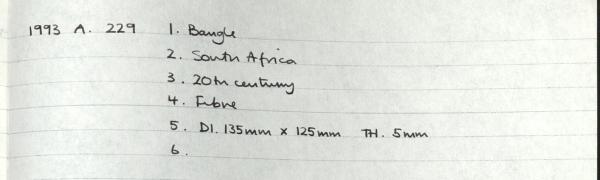 1993 A. 229 1. Bangle
2. South Africa
3. 20th century
4. Fibre
5. DI. 135mm x 125mm TH. 5mm
6.